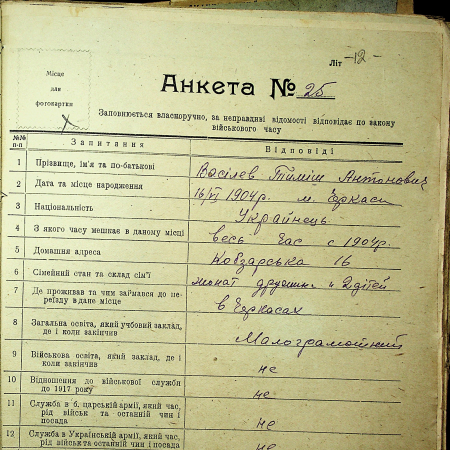 Літ -12-
Місце
для
фотокартки
Анкета № 25
Заповнюється власноручно, за неправдиві відомості відповідає по закону
військового часу
№№ п-п Запитання Відповіді
1 Прізвище, ім'я та по-батькові Васілев Тиміш Антонович
2 Дата та місце народження 16/VI 1904р. м. Черкаси
3 Національність Українець
4 З якого часу мешкає в даному місці весь час с 1904р.
5 Домашня адреса Кобзарська 16
6 Сімейний стан та склад сім'ї жонат дружина и 2 дітей
7 Де проживав та чим займався до пе-
реїзду в дане місце в Черкасах
8 Загальна освіта, який учбовий заклад,
де і коли закінчив Малограмотний
9 Військова освіта, який заклад, де і
коли закінчив не
10 Відношення до військової служби
до 1917 року не
11 Служба в б. царській армії, який час,
рід військ та останній чин і
посада не
12 Служба в Українській армії, який час,
рід військ та останній чин і посада не